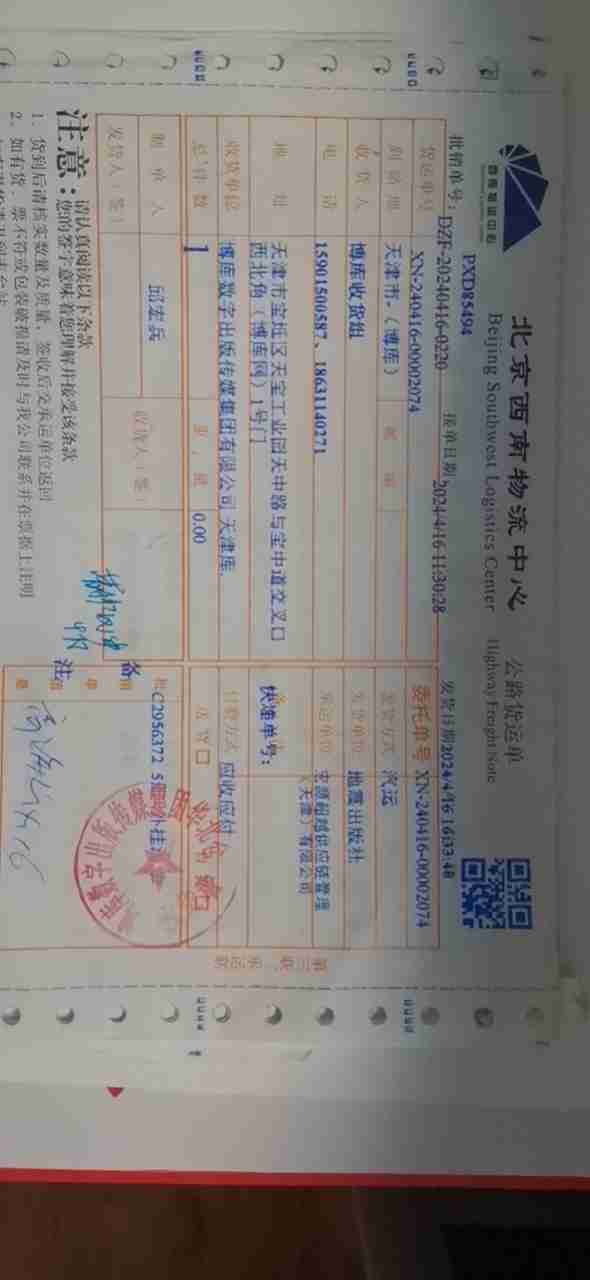 北京西南物流中心 公路货运单
Beijing Southwest Logistics Center Highway Freight Note
西南物流中心
PXD85494
批销单号: DZF-20240416-0220 接单日期 2024/4/16 11:30:28 发货日期 2024/4/16
货运单号 XN-240416-00002074 委托单号 XN-240416-00002074
到站地 天津市-（博库） 发货方式 汽运
收货人 博库收货组 发货单位 地震出版社
电话 15901500587、18631140271 承运单位 志源超越供应链管理（天津）有限公司
地址 天津市宝坻区天宝工业园天中路与宝中道交叉口西北角（博库网）1号门 快准单号:
收货单位 博库数字出版传媒集团有限公司 天津库 付款方式 应收应付
总件数 1 重量 0.00
制单人 邱宏兵 收货人（签）
发货人（签）
备注
C2956372
第三联
注意: 请认真阅读以下条款
您的签字意味着您理解并接受该条款
1、货到后请核实数量及质量，签收后交承运单位返回
2、如有货、票不符或包装破损请及时与我公司联系并在票据上注明